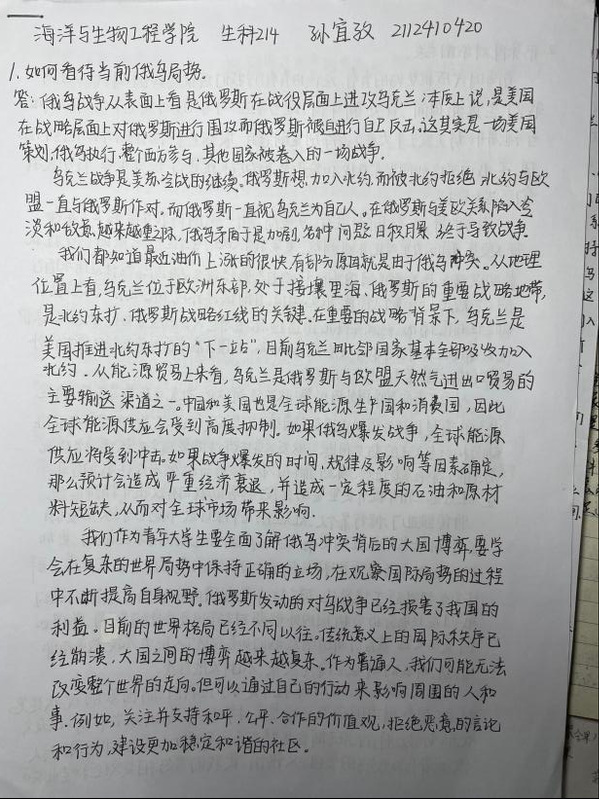 海洋与生物工程学院 生科214 孙宜孜 2112410420
1. 如何看待当前俄乌局势.
答:俄乌战争从表面上看是俄罗斯在战役层面上进攻乌克兰;本质上说,是美国
在战略层面上对俄罗斯进行围攻而俄罗斯被迫进行自卫反击,这其实是一场美国
策划,俄乌执行,整个西方参与,其他国家被卷入的一场战争.
乌克兰战争是美苏冷战的继续.俄罗斯想加入北约,而被北约拒绝.北约与欧
盟一直与俄罗斯作对.而俄罗斯一直视乌克兰为自己人.在俄罗斯与美欧关系陷入冷
淡和敌意越来越重之际,俄乌矛盾于是加剧,各种问题日积月累 终于导致战争.
我们都知道最近油价上涨的很快,有部分原因就是由于俄乌冲突。从地理
位置上看,乌克兰位于欧洲东部,处于接壤里海、俄罗斯的重要战略地带,
是北约东扩、俄罗斯战略红线的关键.在重要的战略背景下,乌克兰是
美国推进北约东扩的“下一站”,目前乌克兰毗邻国家基本全部吸收加入
北约.从能源贸易上来看,乌克兰是俄罗斯与欧盟天然气进出口贸易的
主要输送渠道之一。中国和美国也是全球能源生产国和消费国,因此
全球能源供应会受到高度抑制。如果俄乌爆发战争,全球能源
供应将受到冲击。如果战争爆发的时间,规律及影响等因素确定,
那么预计会造成严重经济衰退,并造成一定程度的石油和原材
料短缺,从而对全球市场带来影响.
我们作为青年大学生要全面了解俄乌冲突背后的大国博弈,要学
会在复杂的世界局势中保持正确的立场,在观察国际局势的过程
中不断提高自身视野.俄罗斯发动的对乌战争已经损害了我国的
利益。目前的世界格局已经不同以往。传统意义上的国际秩序已
经崩溃、大国之间的博弈越来越复杂.作为普通人,我们可能无法
改变整个世界的走向.但可以通过自己的行动来影响周围的人和
事.例如,关注并支持和平,公平、合作的价值观,拒绝恶意的言论
和行为,建设更加稳定和谐的社区。